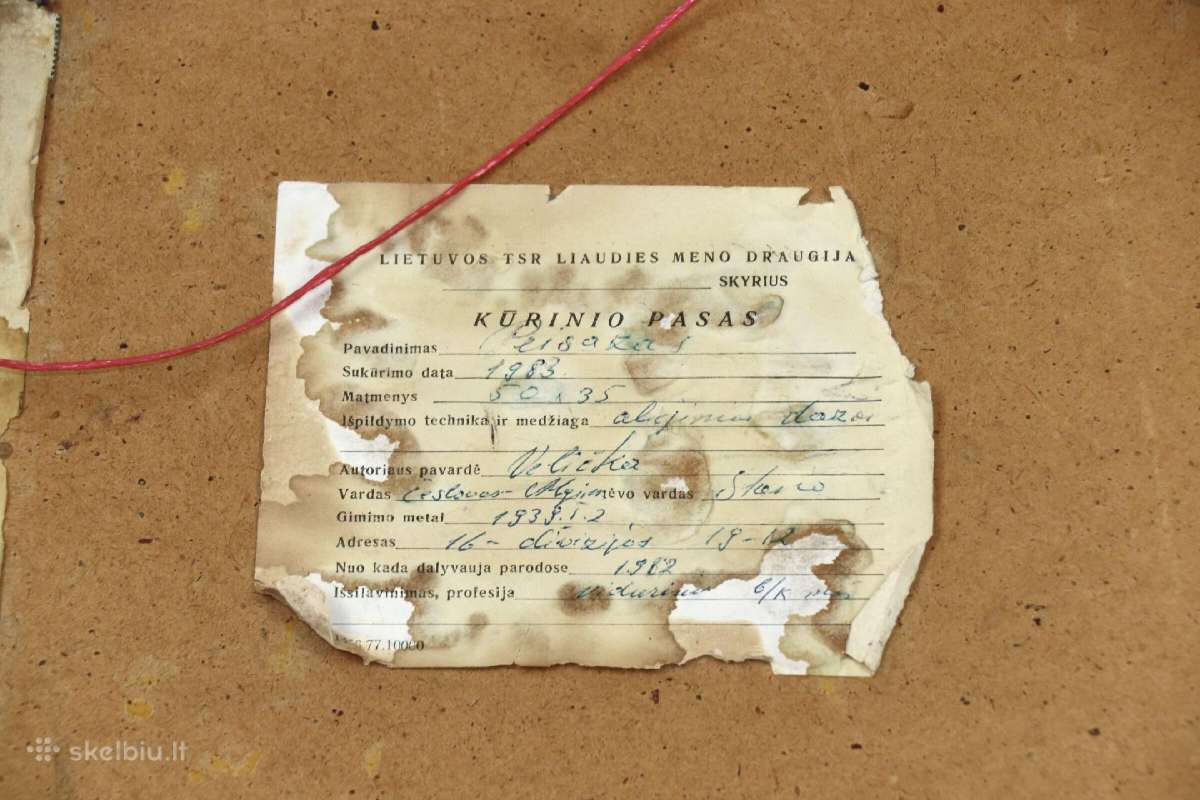 LIETUVOS TSR LIAUDIES MENO DRAUGIJA
SKYRIUS
KŪRINIO PASAS
Pavadinimas Peisažas
Sukūrimo data 1983
Matmenys 50 x 35
Išpildymo technika ir medžiaga aliejinai dažai
Autoriaus pavardė Velička
Vardas Česlovas tėvo vardas
Gimimo metai 1939.I.2
Adresas 16-divizijos 19-12
Nuo kada dalyvauja parodose 1982
Išsilavinimas, profesija vidurinis
77.10000
skelbiu.lt